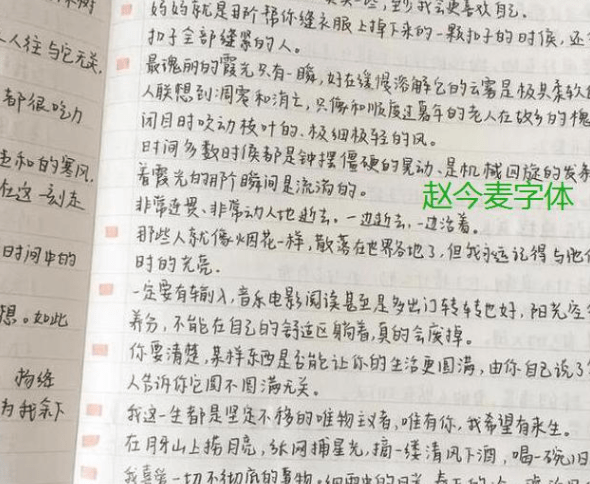 人往与它无关.
都很吃力
和的寒风.
在这一刻走
时间中的
想。如此
为我余下
妈妈就是那阶帮你缝衣服上掉下来的一颗扣子的时候,还
扣子全部缝紧的人。
最瑰丽的霞光只有一瞬,好在缓慢溶解它的云雾是极其柔软
人联想到凋零和消亡,只像和顺度过暮年的老人在故乡的槐
闭目时吹动枝叶的、极细极轻的风。
时间多数时候都是钟摆僵硬的晃动、是机械回旋的发条
着霞光的那阶瞬间是流淌的。
赵今麦字体
非常连贯、非常动人地逝去。一边逝去,一边活着。
那些人就像烟花一样,散落在世界各地了,但我永远记得与他
时的光亮。
一定要有输入,音乐电影阅读甚至是多出门转转也好,阳光空
养分,不能在自己的舒适区躺着,真的会废掉。
你要清楚,某样东西是否能让你的生活更圆满,由你自己说了
人告诉你它圆不圆满无关。
我这一生都是坚定不移的唯物主义者,唯有你,我希望有来生。
在月牙山上捞月亮,张网捕星光,摘一缕清风下酒,喝一碗旧
我喜欢一切不彻底的事物。细雨中的日光,春天的